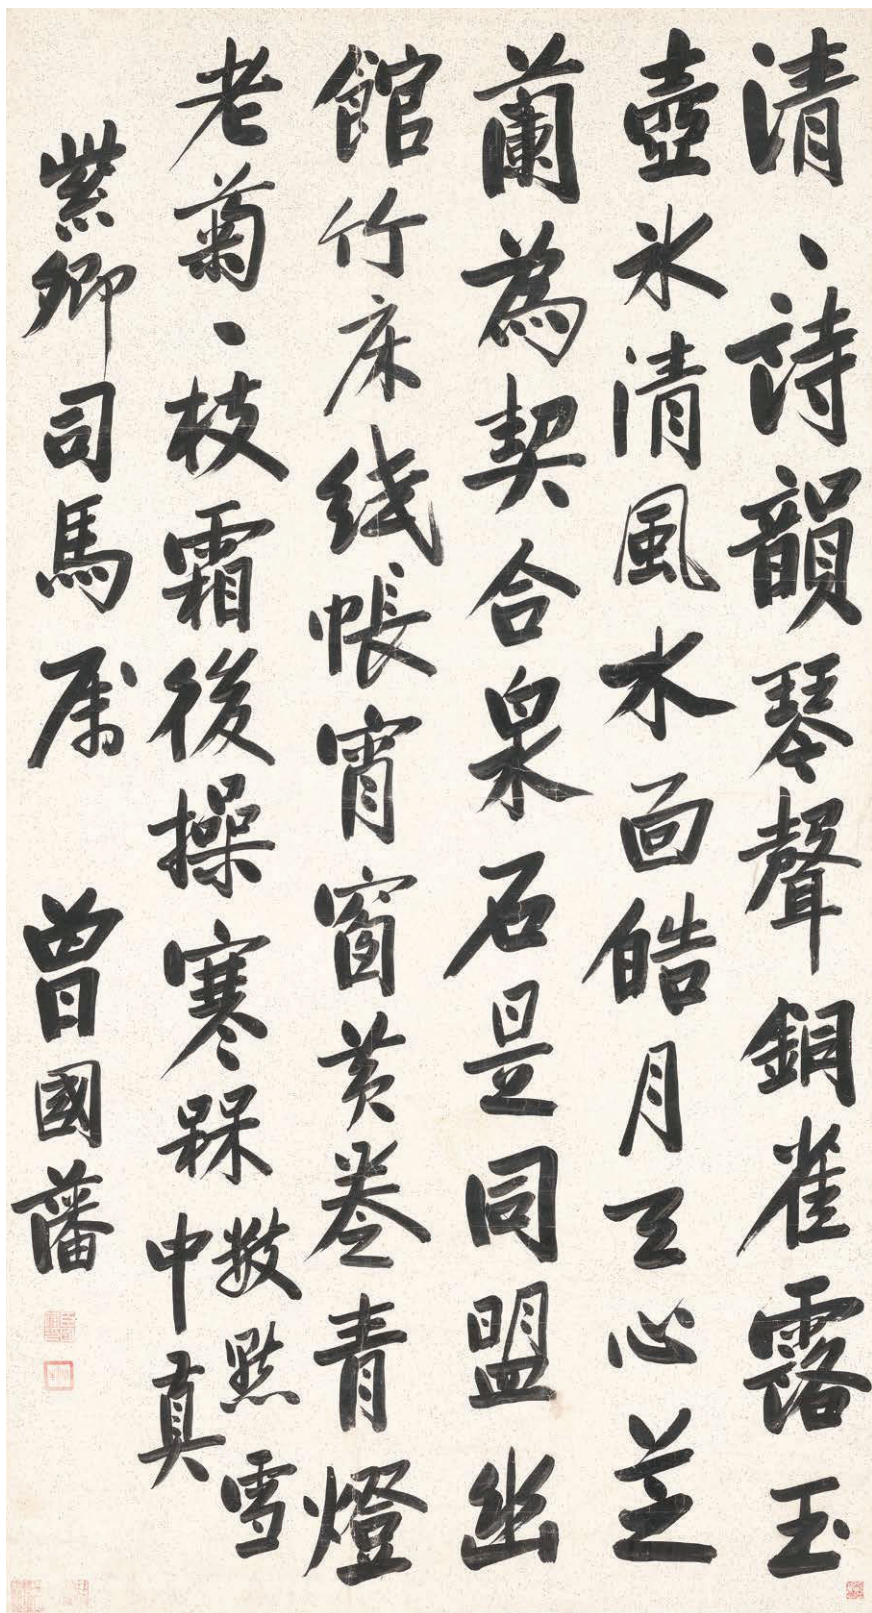 清、詩韻琴聲銅雀露玉
壺氷清風水面皓月天心芝
蘭為契合泉石是同盟幽
館竹床綫帳宵窗黃卷青燈
老菊、枝霜後操寒槑數點雪
中真
紫卿司馬属 曾國藩